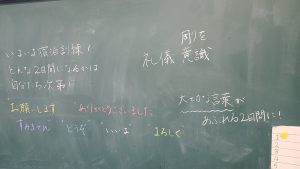 いよいよ宿泊訓練！
どんな2日間になるかは
自分たち次第！！
お願いします
ありがとうございました
すみません
どうぞ
いいよ
よろしく
礼儀
意識
大切な言葉が
あふれる2日間に！